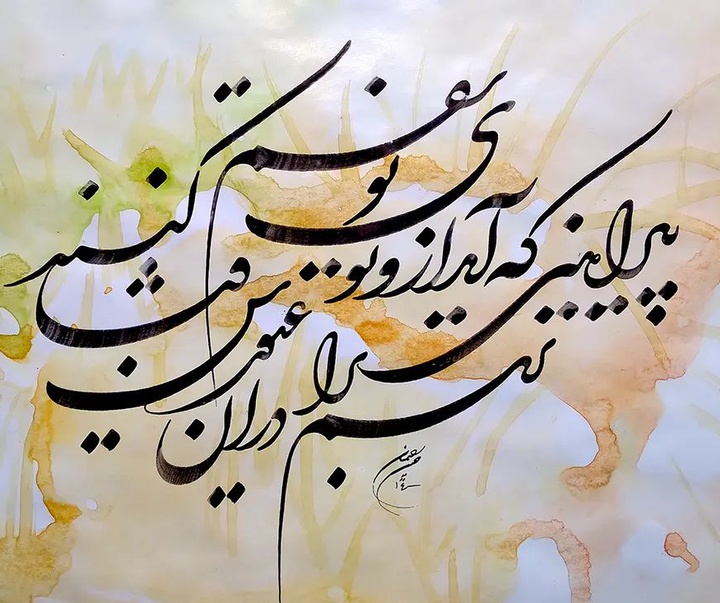 پیراهنی که آید ازو بوی یوسفم
ترسم برادران غیورش قبا کنند